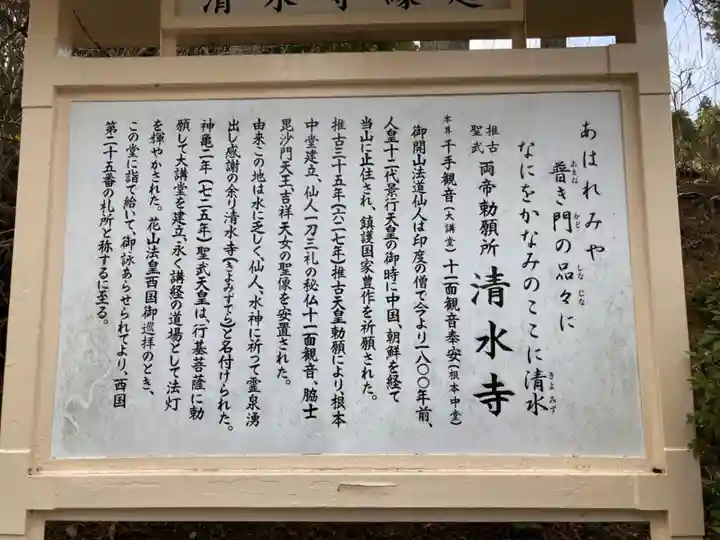 清水寺縁起
あはれみや
普き門の品々に
あまね かど しな じな
なにをかなみのここに清水
きよ みず
推古
聖武 両帝勅願所 清水寺
本尊 千手観音(大講堂) 十一面観音奉安(根本中堂)
御開山法道仙人は印度の僧で今より一八〇〇年前、
人皇十二代景行天皇の御時に中国、朝鮮を経て
当山に止住され、鎮護国家豊作を祈願された。
推古三十五年(六二七年)推古天皇勅願により根本
中堂建立、仙人一刀三礼の秘仏十一面観音、脇士
毘沙門天王、吉祥天女の聖像を安置された。
由来この地は水に乏しく、仙人、水神に祈って霊泉湧
出し感謝の余り清水寺(きよみずでら)と名付けられた。
神亀二年(七二五年)聖武天皇は、行基菩薩に勅
願して大講堂を建立、永く講経の道場として法灯
を輝やかされた。花山法皇西国御巡拝のとき、
この堂に詣で給いて、御詠あらせられてより、西国
第二十五番の札所と称するに至る。